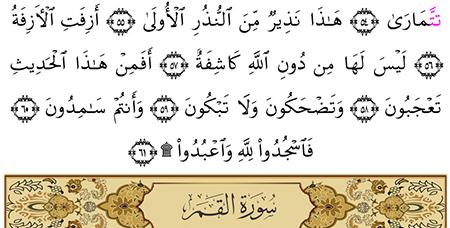 تَتَّمَارَىٰ ﴿٥٤﴾ هَٰذَا نَذِيرٌ مِّنَ ٱلنُّذُرِ ٱلْأُولَىٰ ﴿٥٥﴾ أَزِفَتِ ٱلْآزِفَةُ
﴿٥٦﴾ لَيْسَ لَهَا مِن دُونِ ٱللَّهِ كَاشِفَةٌ ﴿٥٧﴾ أَفَمِنْ هَٰذَا ٱلْحَدِيثِ
تَعْجَبُونَ ﴿٥٨﴾ وَتَضْحَكُونَ وَلَا تَبْكُونَ ﴿٥٩﴾ وَأَنتُمْ سَٰمِدُونَ ﴿٦٠﴾
فَٱسْجُدُوا۟ لِلَّهِ وَٱعْبُدُوا۟ ۩ ﴿٦١﴾
سورة القمر